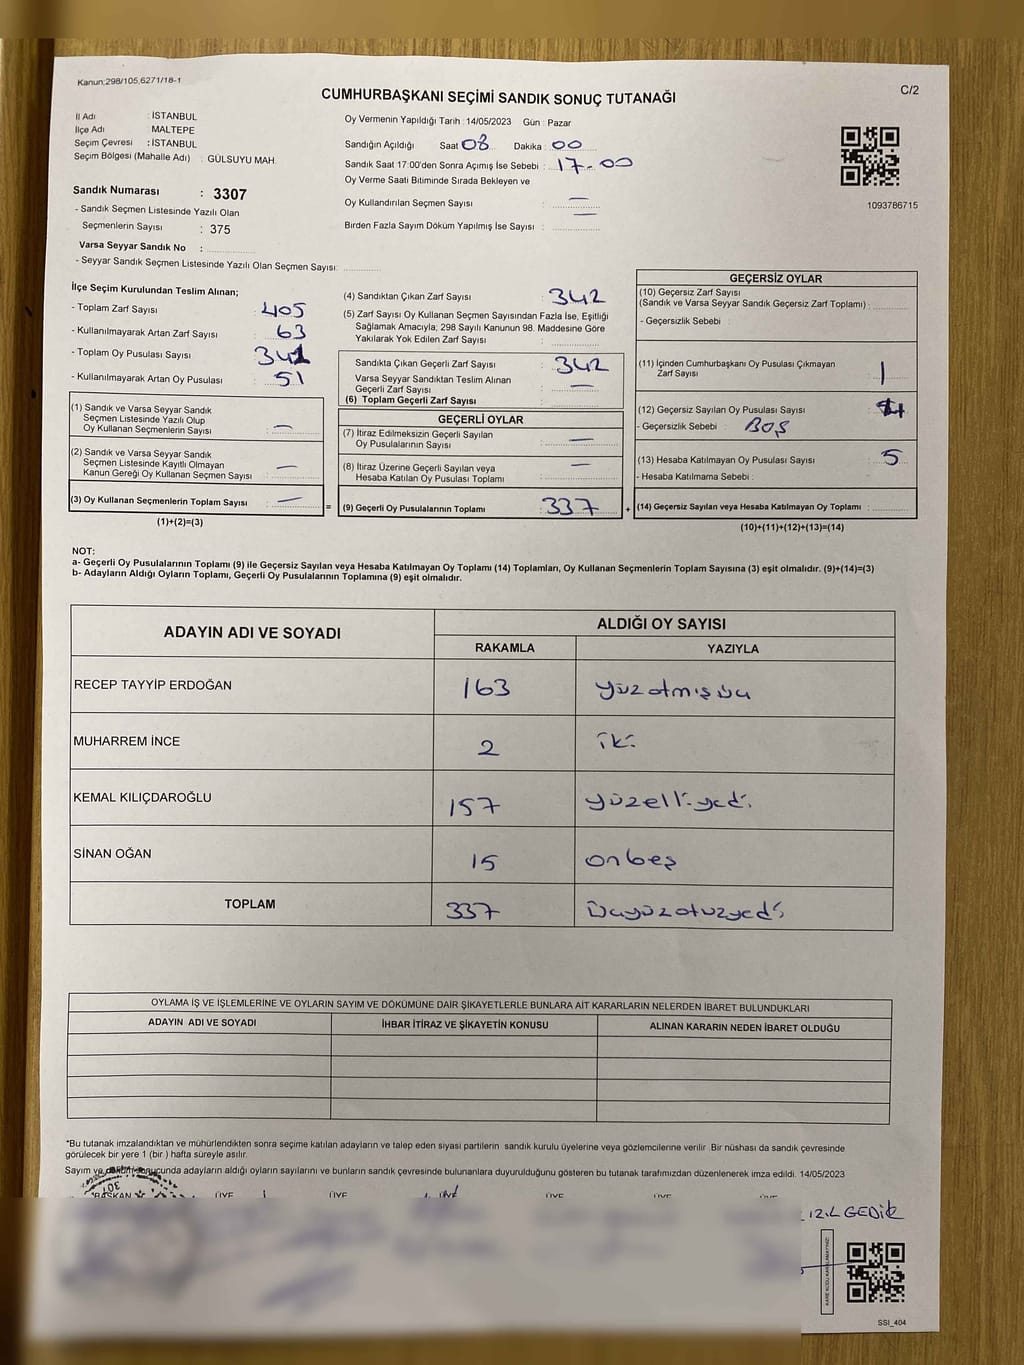 Kanun:298/105,6271/18-1
C/2
CUMHURBAŞKANI SEÇİMİ SANDIK SONUÇ TUTANAĞI
İl Adı : İSTANBUL
İlçe Adı : MALTEPE
Seçim Çevresi : İSTANBUL
Seçim Bölgesi (Mahalle Adı) : GÜLSUYU MAH.
Sandık Numarası : 3307
- Sandık Seçmen Listesinde Yazılı Olan
Seçmenlerin Sayısı : 375
Varsa Seyyar Sandık No :
- Seyyar Sandık Seçmen Listesinde Yazılı Olan Seçmen Sayısı:
Oy Vermenin Yapıldığı Tarih : 14/05/2023 Gün : Pazar
Sandığın Açıldığı Saat 08 Dakika : 00
Sandık Saat 17:00'den Sonra Açımış İse Sebebi : 17-00
Oy Verme Saati Bitiminde Sırada Bekleyen ve
Oy Kullandırılan Seçmen Sayısı : —
Birden Fazla Sayım Döküm Yapılmış İse Sayısı : —
1093786715
İlçe Seçim Kurulundan Teslim Alınan;
- Toplam Zarf Sayısı : 405
- Kullanılmayarak Artan Zarf Sayısı : 63
- Toplam Oy Pusulası Sayısı
- Kullanılmayarak Artan Oy Pusulası : 51
(1) Sandık ve Varsa Seyyar Sandık
Seçmen Listesinde Yazılı Olup
Oy Kullanan Seçmenlerin Sayısı : —
(2) Sandık ve Varsa Seyyar Sandık
Seçmen Listesinde Kayıtlı Olmayan
Kanun Gereği Oy Kullanan Seçmen Sayısı : —
(3) Oy Kullanan Seçmenlerin Toplam Sayısı : —
(1)+(2)=(3)
(4) Sandıktan Çıkan Zarf Sayısı : 342
(5) Zarf Sayısı Oy Kullanan Seçmen Sayısından Fazla İse, Eşitliği
Sağlamak Amacıyla; 298 Sayılı Kanunun 98. Maddesine Göre
Yakılarak Yok Edilen Zarf Sayısı :
Sandıkta Çıkan Geçerli Zarf Sayısı : 342
Varsa Seyyar Sandıktan Teslim Alınan
Geçerli Zarf Sayısı : —
(6) Toplam Geçerli Zarf Sayısı :
GEÇERLİ OYLAR
(7) İtiraz Edilmeksizin Geçerli Sayılan
Oy Pusulalarının Sayısı : —
(8) İtiraz Üzerine Geçerli Sayılan veya
Hesaba Katılan Oy Pusulası Toplamı : —
= (9) Geçerli Oy Pusulalarının Toplamı : 337 +
GEÇERSİZ OYLAR
(10) Geçersiz Zarf Sayısı
(Sandık ve Varsa Seyyar Sandık Geçersiz Zarf Toplamı) :
- Geçersizlik Sebebi :
(11) İçinden Cumhurbaşkanı Oy Pusulası Çıkmayan
Zarf Sayısı : 1
(12) Geçersiz Sayılan Oy Pusulası Sayısı :
- Geçersizlik Sebebi : BOŞ
(13) Hesaba Katılmayan Oy Pusulası Sayısı : 5
- Hesaba Katılmama Sebebi :
(14) Geçersiz Sayılan veya Hesaba Katılmayan Oy Toplamı :
(10)+(11)+(12)+(13)=(14)
NOT:
a- Geçerli Oy Pusulalarının Toplamı (9) ile Geçersiz Sayılan veya Hesaba Katılmayan Oy Toplamı (14) Toplamları, Oy Kullanan Seçmenlerin Toplam Sayısına (3) eşit olmalıdır. (9)+(14)=(3)
b- Adayların Aldığı Oyların Toplamı, Geçerli Oy Pusulalarının Toplamına (9) eşit olmalıdır.
ADAYIN ADI VE SOYADI
ALDIĞI OY SAYISI
RAKAMLA YAZIYLA
RECEP TAYYİP ERDOĞAN 163 yüzatmışüç
MUHARREM İNCE 2 iki
KEMAL KILIÇDAROĞLU 157 yüzelliyedi
SİNAN OĞAN 15 onbeş
TOPLAM 337 Üçyüzotuzyedi
OYLAMA İŞ VE İŞLEMLERİNE VE OYLARIN SAYIM VE DÖKÜMÜNE DAİR ŞİKAYETLERLE BUNLARA AİT KARARLARIN NELERDEN İBARET BULUNDUKLARI
ADAYIN ADI VE SOYADI İHBAR İTİRAZ VE ŞİKAYETİN KONUSU ALINAN KARARIN NEDEN İBARET OLDUĞU
*Bu tutanak imzalandıktan ve mühürlendikten sonra seçime katılan adayların ve talep eden siyasi partilerin sandık kurulu üyelerine veya gözlemcilerine verilir. Bir nüshası da sandık çevresinde
görülecek bir yere 1 (bir ) hafta süreyle asılır.
Sayım ve sonucunda adayların aldığı oyların sayılarını ve bunların sandık çevresinde bulunanlara duyurulduğunu gösteren bu tutanak tarafımızdan düzenlenerek imza edildi. 14/05/2023
BAŞKAN ÜYE ÜYE ÜYE ÜYE ÜYE ÜYE
GEDİK
SSI_404